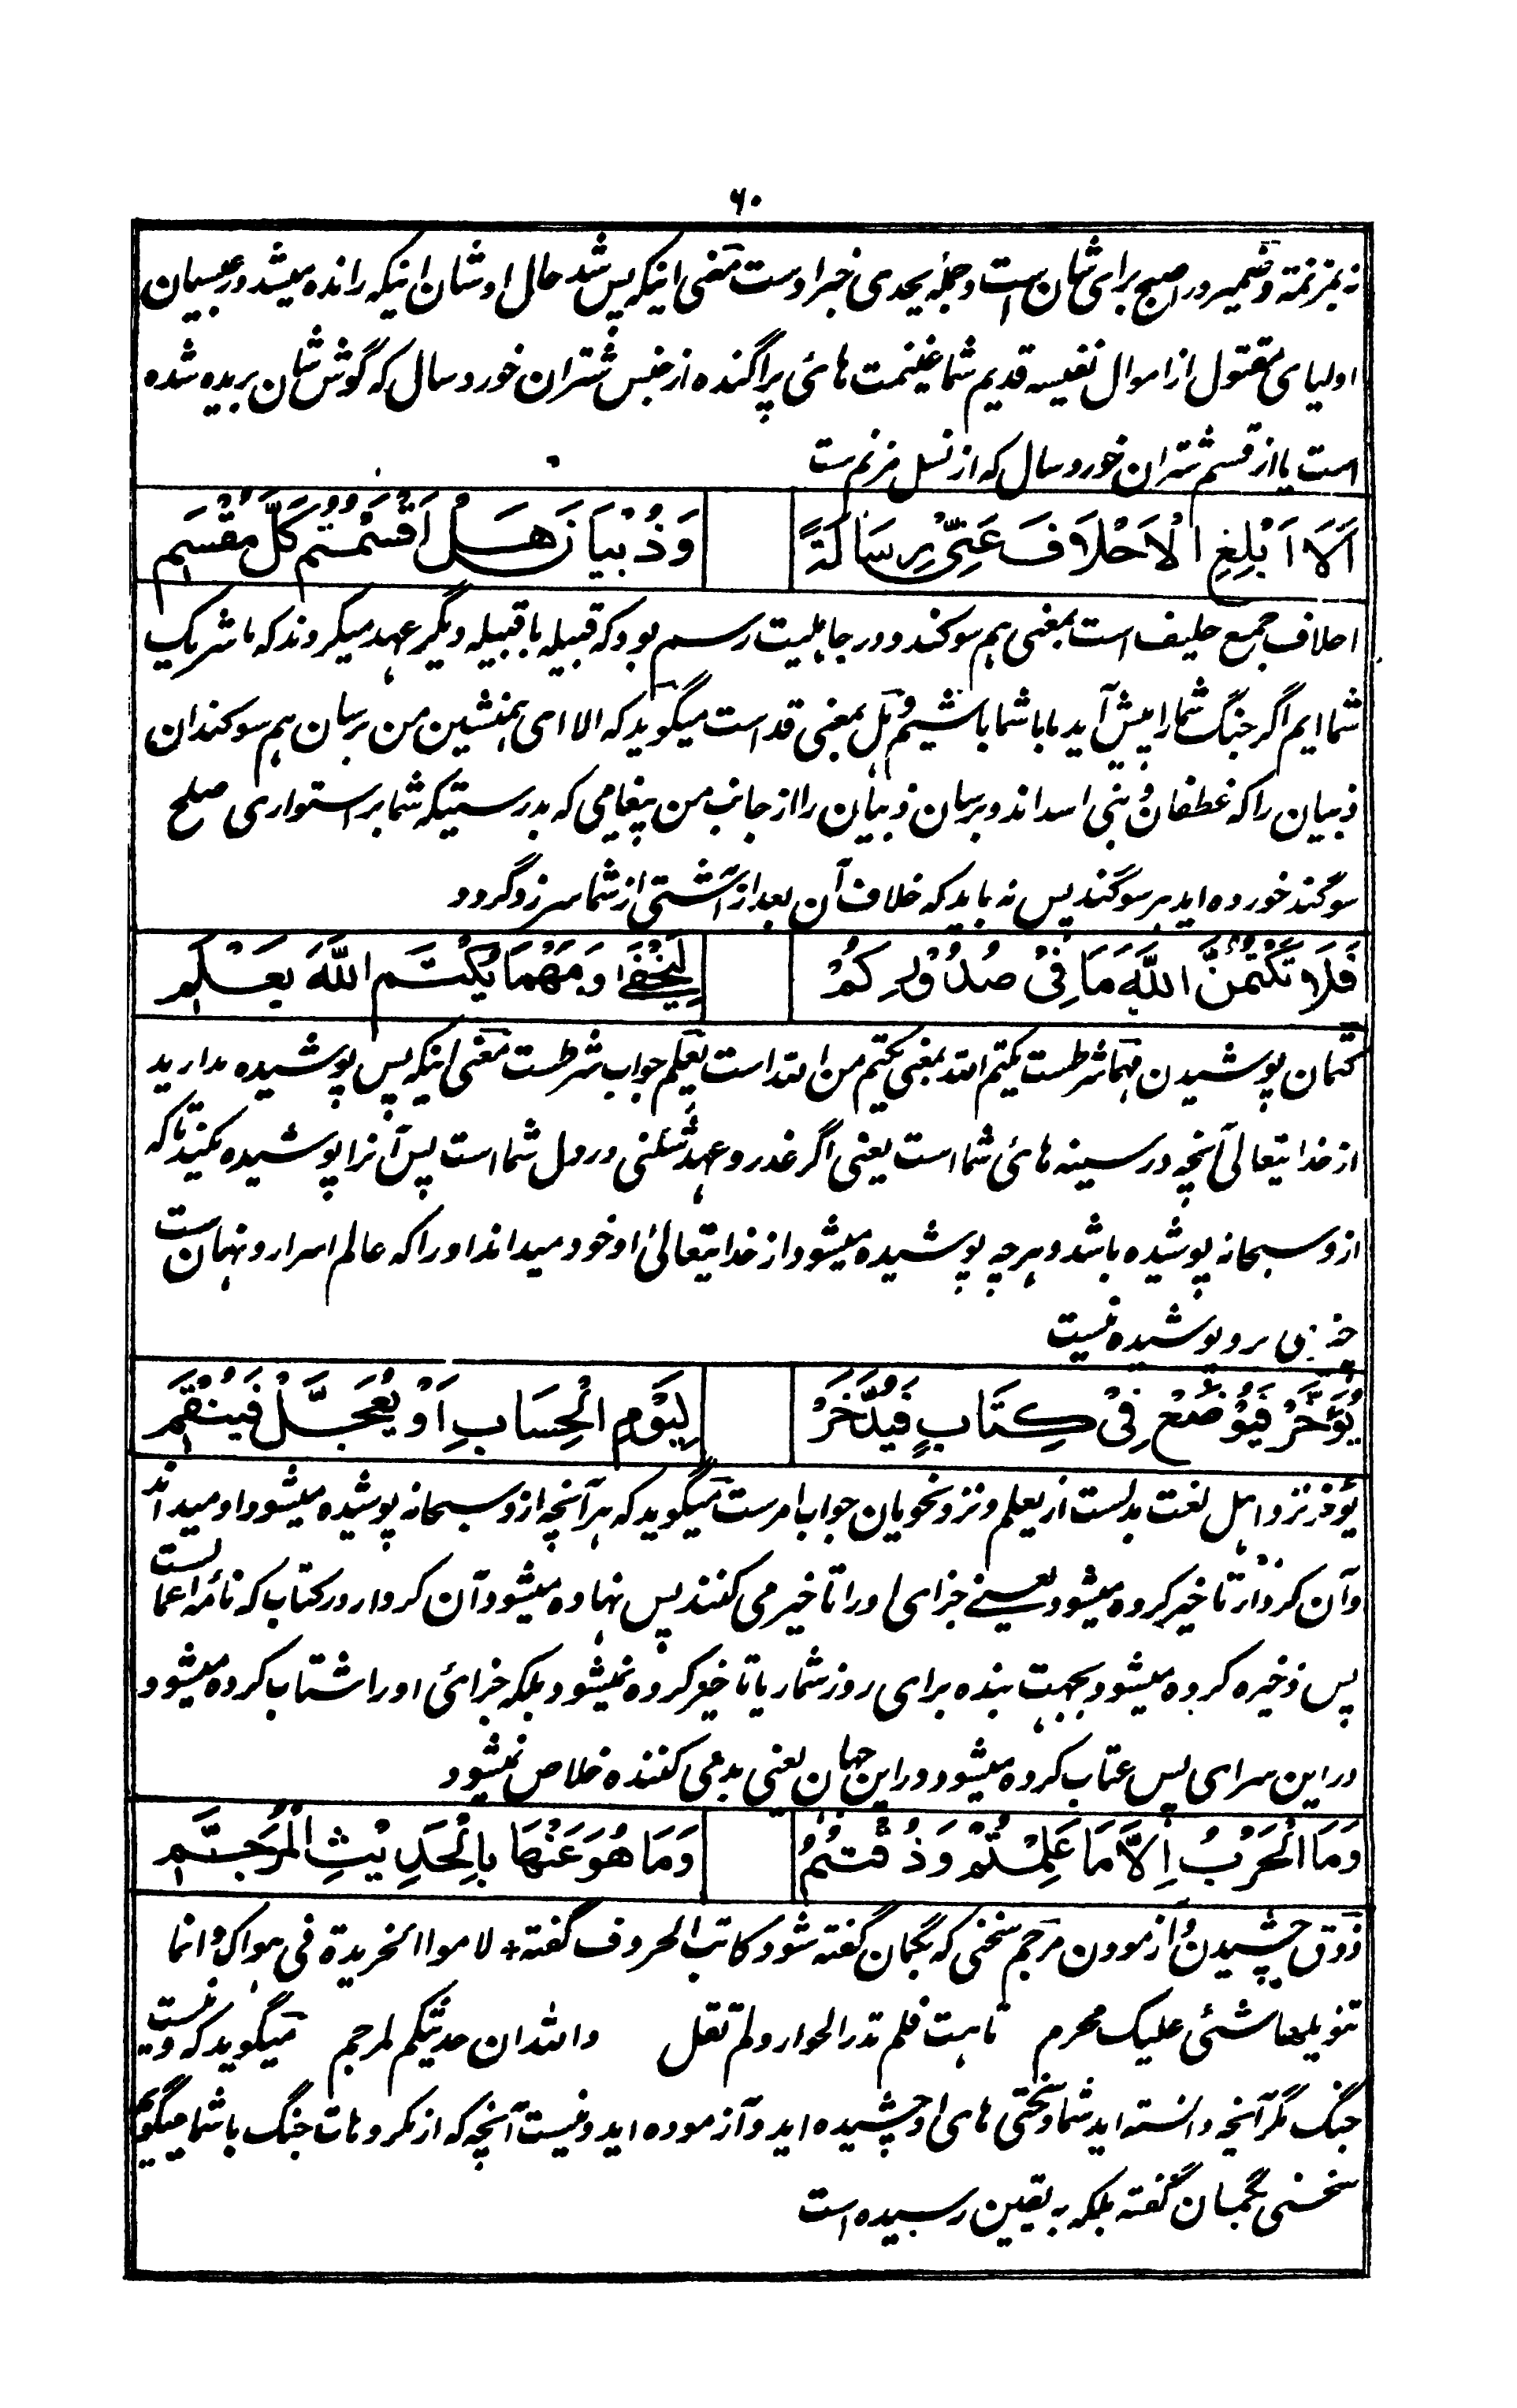 ۶۰
نه بمزنمة و ضمیر در اصبح برای شان ست و جمله یحدی خبر اوست معنی اینکه پس شد حال اوشان اینکه رانده میشد در عبسیان
اولیای مقتول از اموال نفیسه قدیم شما غنیمت های پراگنده از جنس شتران خورد سال که گوش شان بریده شده
است یا از قسم شتران خورد سال که از نسل مزنم ست
اَلَا اَبْلِغِ الْاَحْلَافَ عَنِّیْ رِسَالَةً وَذُبْیَانَ هَلْ اَقْسَمْتُمْ كُلَّ مُقْسَمِ
احلاف جمع حلیف است بمعنی هم سوکند و در جاهلیت رسم بود که قبیله با قبیله دیگر عهد میکردند که ما شریک
شما ایم اگر جنگ شما را پیش آید ما با شما باشیم و هل بمعنی قد است میگوید که الا ای همنشین من برسان هم سوکندان
ذبیان را که غطفان و بنی اسد اند و برسان ذبیان را از جانب من پیغامی که بدرستیکه شما بر استواری صلح
سوگند خورده اید هر سوگند پس نه باید که خلاف آن بعد از آشتی از شما سرزد گردد
فَلَا تَكْتُمُنَّ اللّٰهَ مَا فِیْ صُدُوْرِكُمْ لِیَخْفٰی وَمَهْمَا یُكْتَمِ اللّٰهُ یَعْلَمِ
کتمان پوشیدن مهما شرطست یکتم الله بمعنی یکتم من الله است یعلم جواب شرطست معنی اینکه پس پوشیده مدارید
از خدایتعالی آنچه در سینه های شما است یعنی اگر غدر و عهد شکنی در دل شما است پس آنرا پوشیده مکنید تا که
از وسبحانه پوشیده باشد و هرچه پوشیده میشود از خدایتعالیٰ او خود میداند او را که عالم اسرار و نهان ست
برو پوشیده نیست
یُؤَخَّرْ فَیُوْضَعْ فِیْ كِتَابٍ فَیُدَّخَرْ لِیَوْمِ الْحِسَابِ اَوْ یُعَجَّلْ فَیُنْقَمِ
یوخر نزد اهل لغت بدلست از یعلم و نزد نحویان جواب امرست میگوید که هر آنچه از وسبحانه پوشیده میشود او میداند
و آن کردار تاخیر کرده میشود یعنے جزای او را تاخیر می کنند پس نهاده میشود آن کردار در کتاب که نامه اعمالست
پس ذخیره کرده میشود بجهت بنده برای روز شمار یا تاخیر کرده نمیشود بلکه جزائی او را شتاب کرده میشود
در این سرای پس عتاب کرده میشود در این جهان یعنی بدمی کننده خلاص نمیشود
وَمَا الْحَرْبُ اِلَّا مَا عَلِمْتُمْ وَذُقْتُمُ وَمَا هُوَ عَنْهَا بِالْحَدِیْثِ الْمُرَجَّمِ
ذوق چشیدن و آزمودن مرجم سخنی که بگمان گفته شود کاتب الحروف گفته + لاموا الخریدة فی هواک و انما
تنویلها شئی علیک محرم تاهت فلم تدر الحوار و لم تقل والله ان حدیثکم لمرجم میگوید که و نیست
جنگ مگر آنچه دانسته اید شما و سختی های او چشیده اید و آزموده اید و نیست آنچه که از مکروهات جنگ با شما میگویم
سخنی بگمان گفته بلکه به یقین رسیده است